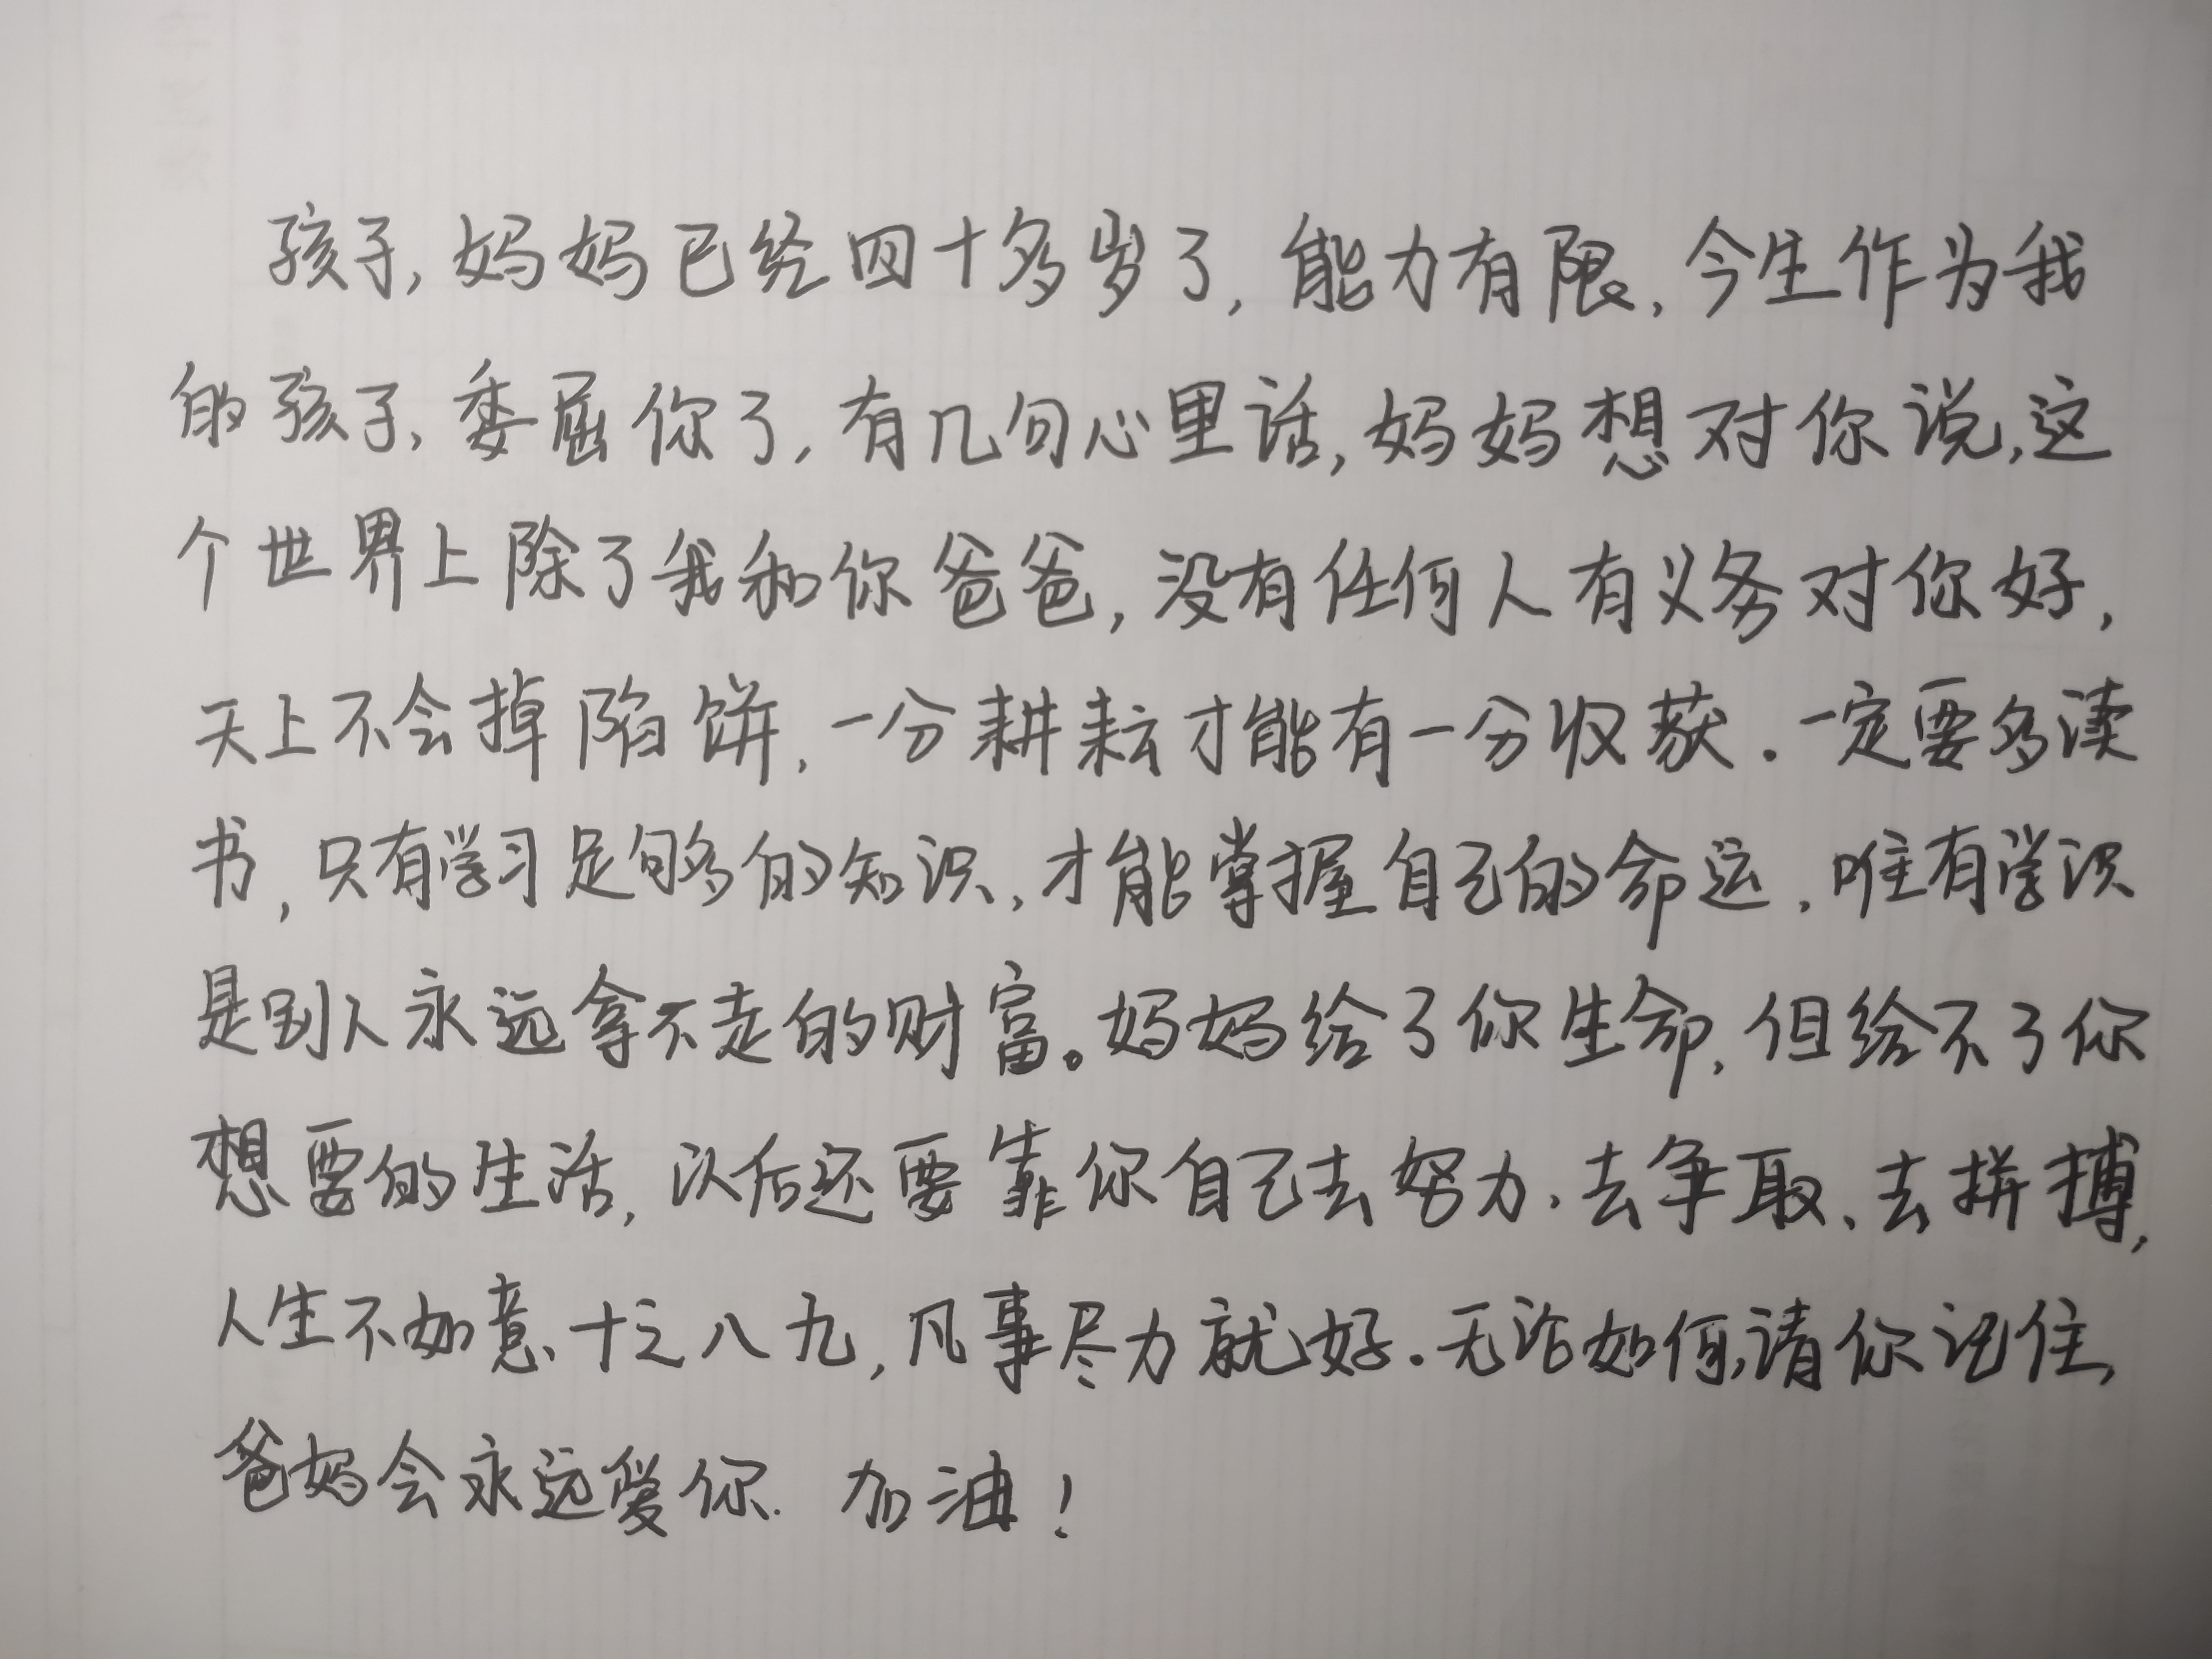 孩子,妈妈已经四十多岁了,能力有限,今生作为我
的孩子,委屈你了,有几句心里话,妈妈想对你说,这
个世界上除了我和你爸爸,没有任何人有义务对你好,
天上不会掉陷饼,一分耕耘才能有一分收获.一定要多读
书,只有学习足够的知识,才能掌握自己的命运,唯有学识
是别人永远拿不走的财富。妈妈给了你生命,但给不了你
想要的生活,以后还要靠你自己去努力、去争取、去拼搏,
人生不如意、十之八九,凡事尽力就好.无论如何,请你记住,
爸妈会永远爱你. 加油!